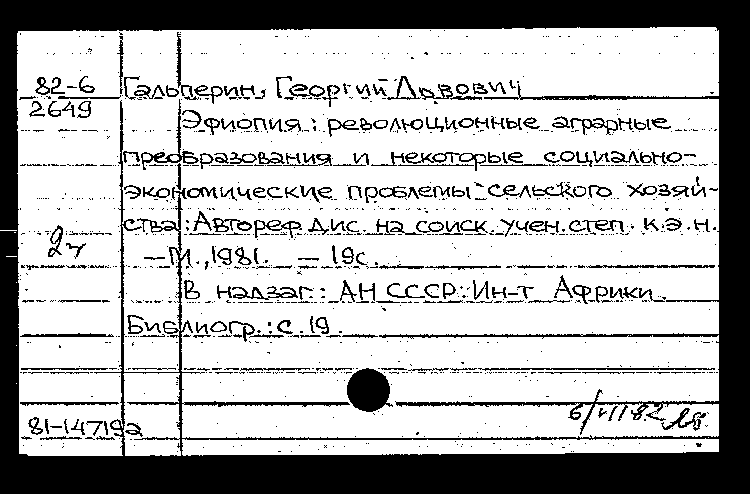 82-6 Гальперин, Георгий Львович
2649
Эфиопия: революционные аграрные
преобразования и некоторые социально-
экономические проблемы сельского хозяй-
ства: Автореф дис. на соиск. учен. степ. к.э.н.
—М., 1981. — 19с.
В надзаг: АН СССР. Ин-т Африки.
Библиогр.: с. 19.
6/VII 82
81-14719а